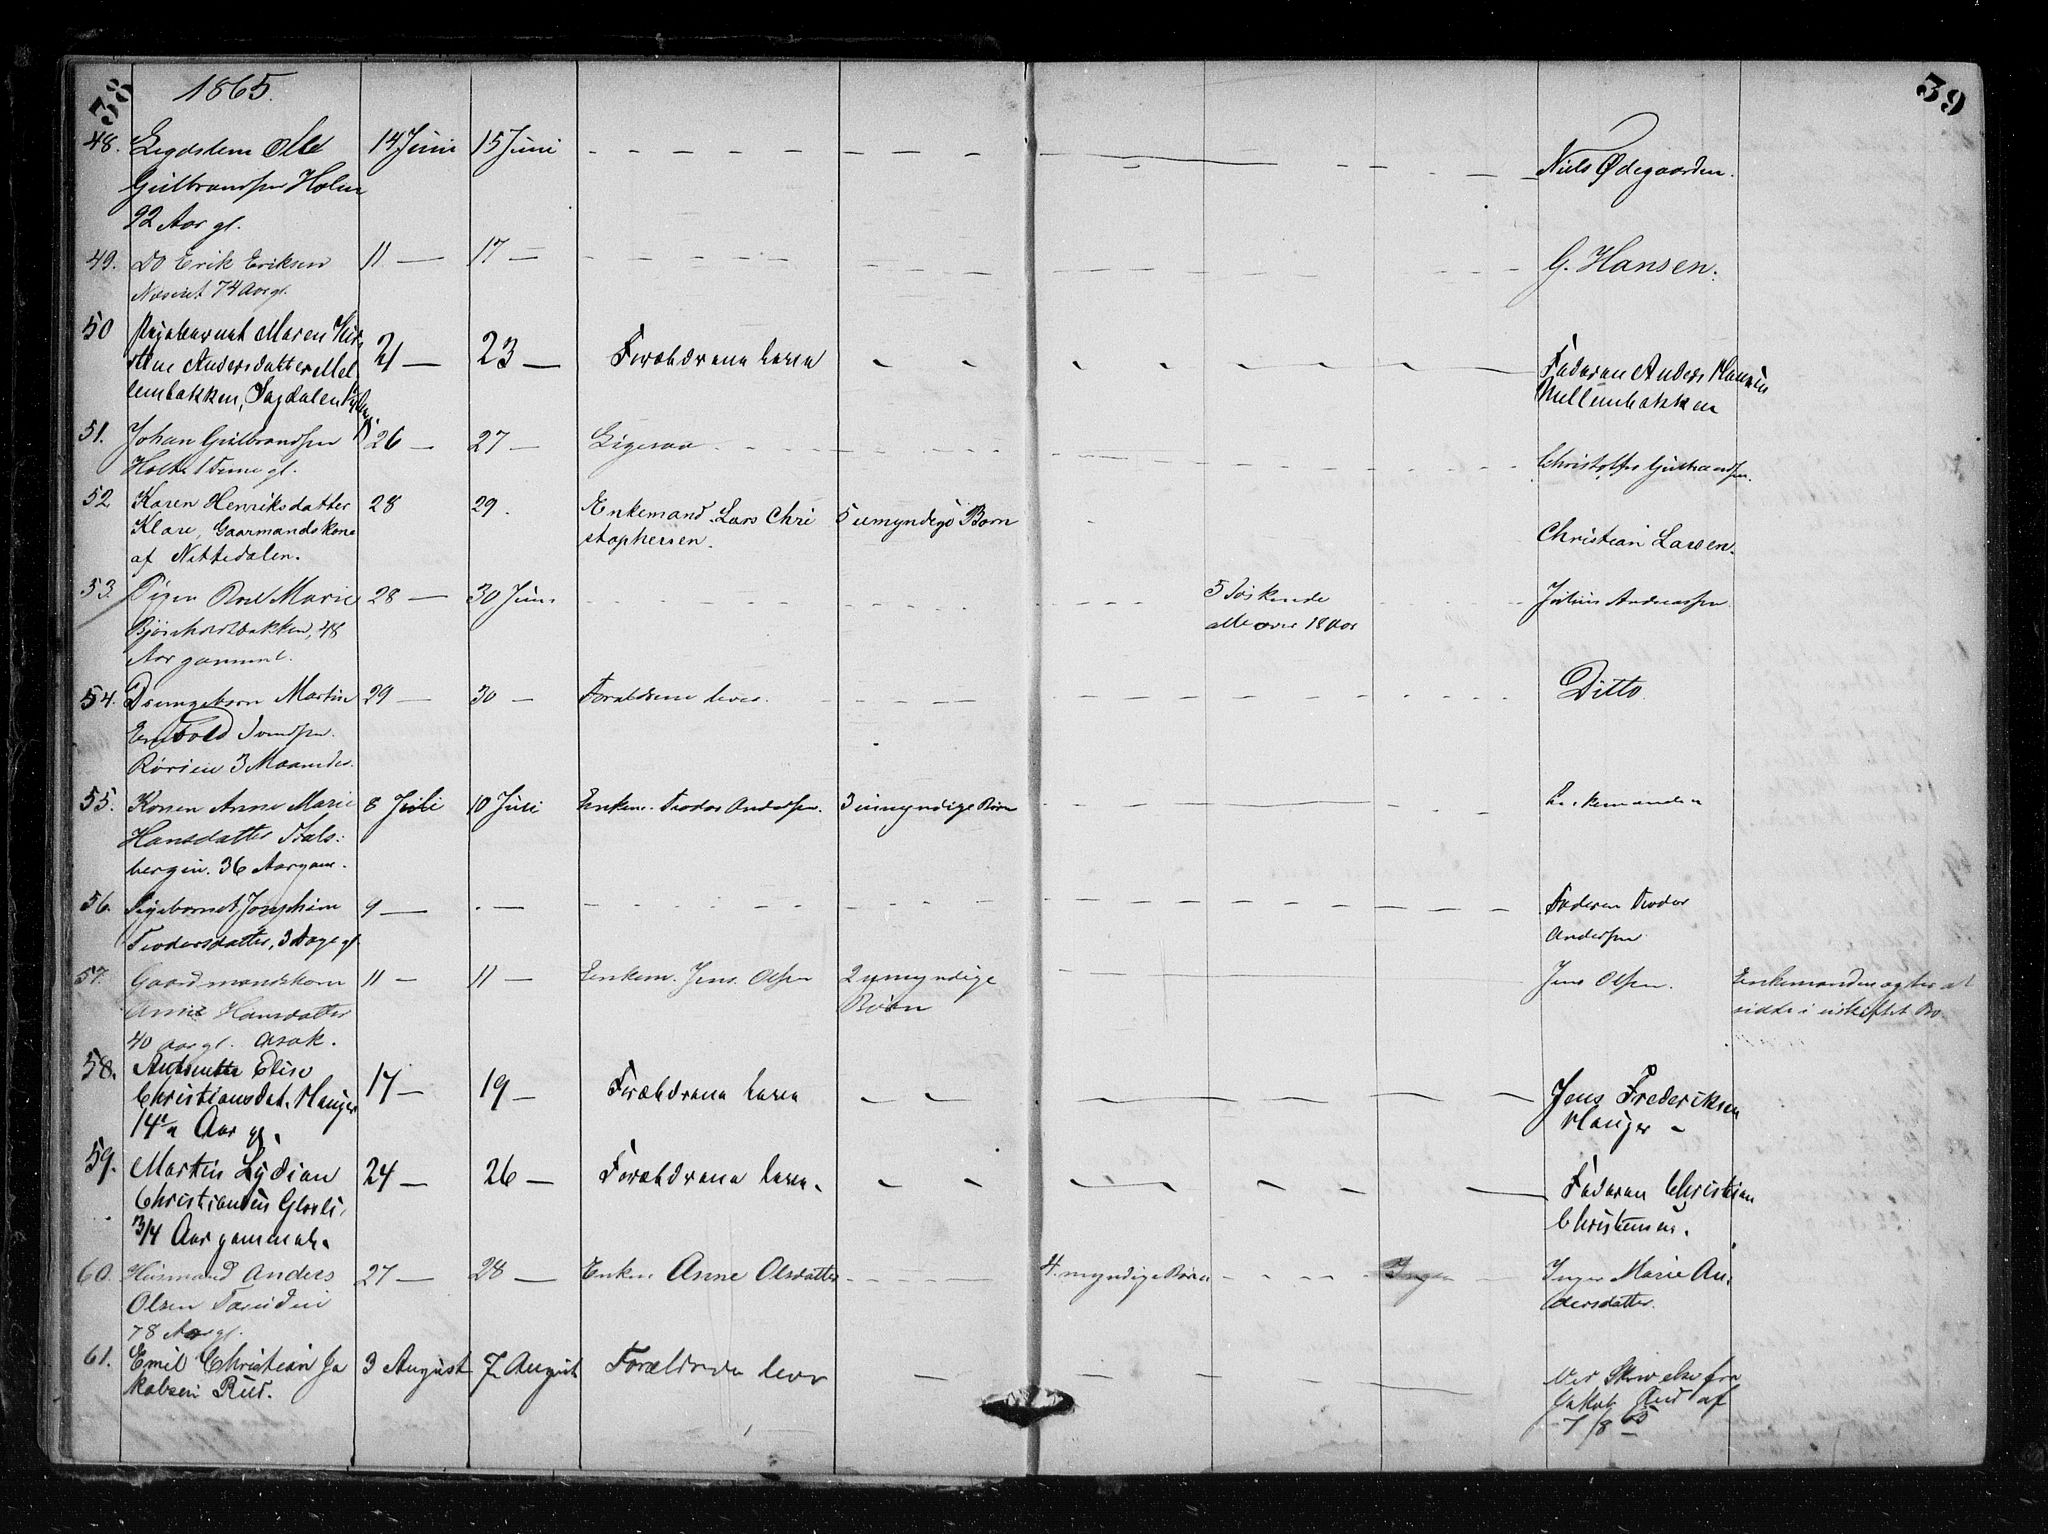 38
39
1865.
48. Legdslem Ole 14 Juni 15 Juni
Gulbrandsen Holm Niels Ødegaarden.
92 Aar gl.
49. Do Erik Eriksen 11 — 17 — G. Hansen.
Næseret 74 Aar gl.
50 Pigebarnet Maren Kir- 21 — 23 — Forældrene leve Faderen Anders Hansen
stine Andersdatter Mel- Mellembakken
lembakken, Sagdalen
51. Johan Gulbrandsen 26 — 27 — Ligesaa Christoffer Gulbrandsen.
gl.
52 Karen Henriksdatter 28 29. Enkemand Lars Chri 5 umyndige Børn Christian Larsen.
Klare, Gaarmandskone stophersen.
af Nittedalen.
53. Pigen Marie 28 — 30 Juni 5 Søskende Julius Andreassen
48 alle over 18 Aar
Aar gammel.
54. Drengebarn Martin 29 — 30 — Forældrene leve. Ditto.
3 Maaneder.
55. Konen Anne Marie 8 Juli 10 Juli Enkem. Teodor Andersen. 3 umyndige Børn Enkemanden
Hansdatter Stals-
bergin. 36 Aar gam.
56. Pigebarnet Josephine 9 — . — Faderen Teodor
Teodorsdatter, 3 Dage gl. Andersen
57. Gaardmandskone 11 — 11 — Enkem. Jens Olsen 2 umyndige Jens Olsen. Enkemanden agter at
Anne Hansdatter Børn sidde i uskiftet Bo.
40 aar gl. Asak.
58. Andrette Elise 17 — 19 — Forældrene leve Jens Frederiksen
Christiansdat. Hauger Hauger —
14 1/2 Aar gl.
59. Martin Lydian 24 — 26 — Forældrene leve. Faderen Christian
Christiansen Christensen.
3/4 Aar gammel.
60. Husmand Anders 27 — 28 — Enken Anne Olsdatter 4 myndige Børn Ingen Inger Marie An-
Olsen dersdatter.
78 Aar gl.
61. Emil Christian Ja 3 August 7 August Forældrene leve Ved Skrivelse fra
kobsen Rud. Jakob Rud af
7/8 65